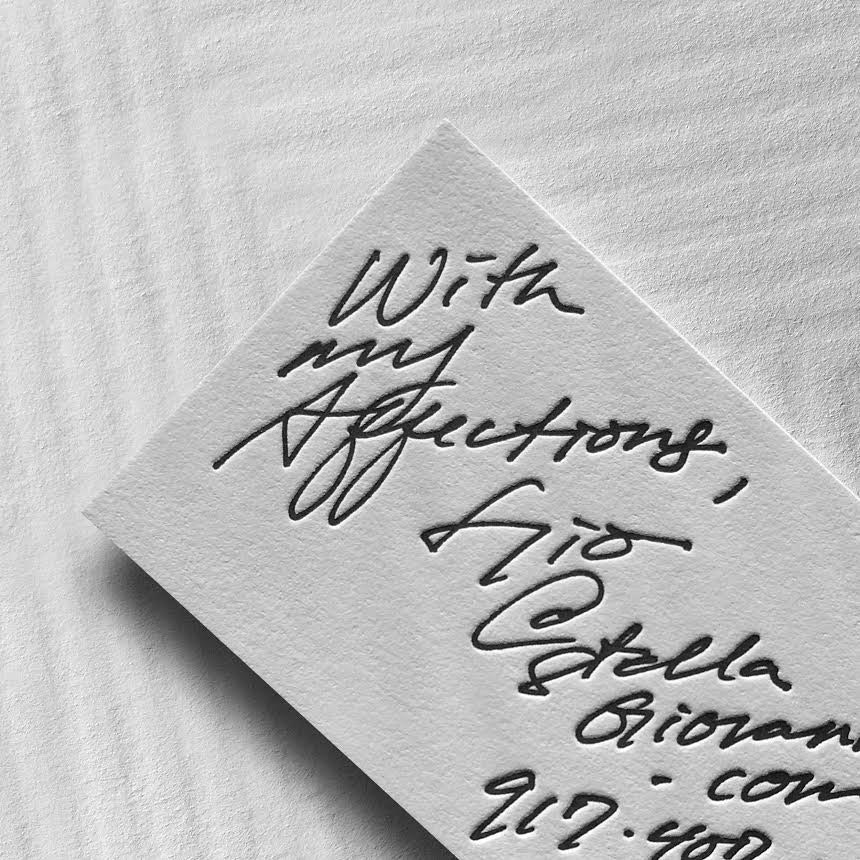 With
my
Affections,
Gio
@
Stella
Giovann
.com
917.